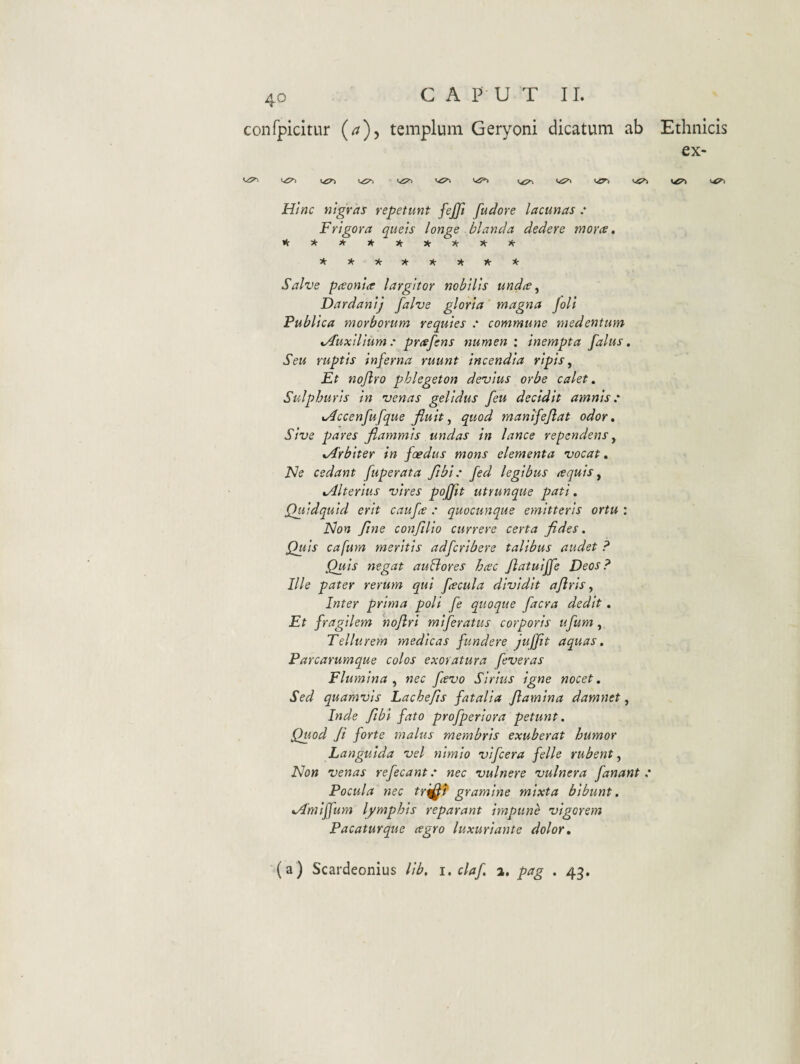 40 CAPUT II.
conſpicitur (a), templum Geryoni dicatum ab Ethnicis
ex-
Hinc nigras repetunt feſſi ſudore lacunas :
Frigora queis longe blanda dedere moræ.
* * * * * * * * *
* * * * * * * *
Salve pæoniæ largitor nobilis undæ,
Dardanij ſalve gloria magna ſoli
Publica morborum requies : commune medentum
Auxilium : præſens numen : inempta ſalus.
Seu ruptis inferna ruunt incendia ripis,
Et noſtro phlegeton devius orbe calet.
Sulphuris in venas gelidus ſeu decidit amnis :
Accenſuſque fluit, quod manifeſtat odor.
Sive pares flammis undas in lance rependens,
Arbiter in fœdus mons elementa vocat.
Ne cedant ſuperata ſibi : ſed legibus æquis,
Alterius vires poſſit utrunque pati.
Quidquid erit cauſæ : quocunque emitteris ortu :
Non ſine conſilio currere certa fides.
Quis caſum meritis adſcribere talibus audet ?
Quis negat auctores hæc ſtatuiſſe Deos ?
Ille pater rerum qui ſæcula dividit aſtris,
Inter prima poli ſe quoque ſacra dedit.
Et fragilem noſtri miſeratus corporis uſum,
Tellurem medicas fundere juſſit aquas.
Parcarumque colos exoratura ſeveras
Flumina, nec ſævo Sirius igne nocet.
Sed quamvis Lacheſis fatalia ſtamina damnet,
Inde ſibi fato proſperiora petunt.
Quod ſi forte malus membris exuberat humor
Languida vel nimio viſcera felle rubent,
Non venas reſecant : nec vulnere vulnera ſanant :
Pocula nec triſti gramine mixta bibunt.
Amiſſum lymphis reparant impunè vigorem
Pacaturque ægro luxuriante dolor.
(a) Scardeonius lib. 1. claſ. 2. pag. 43.